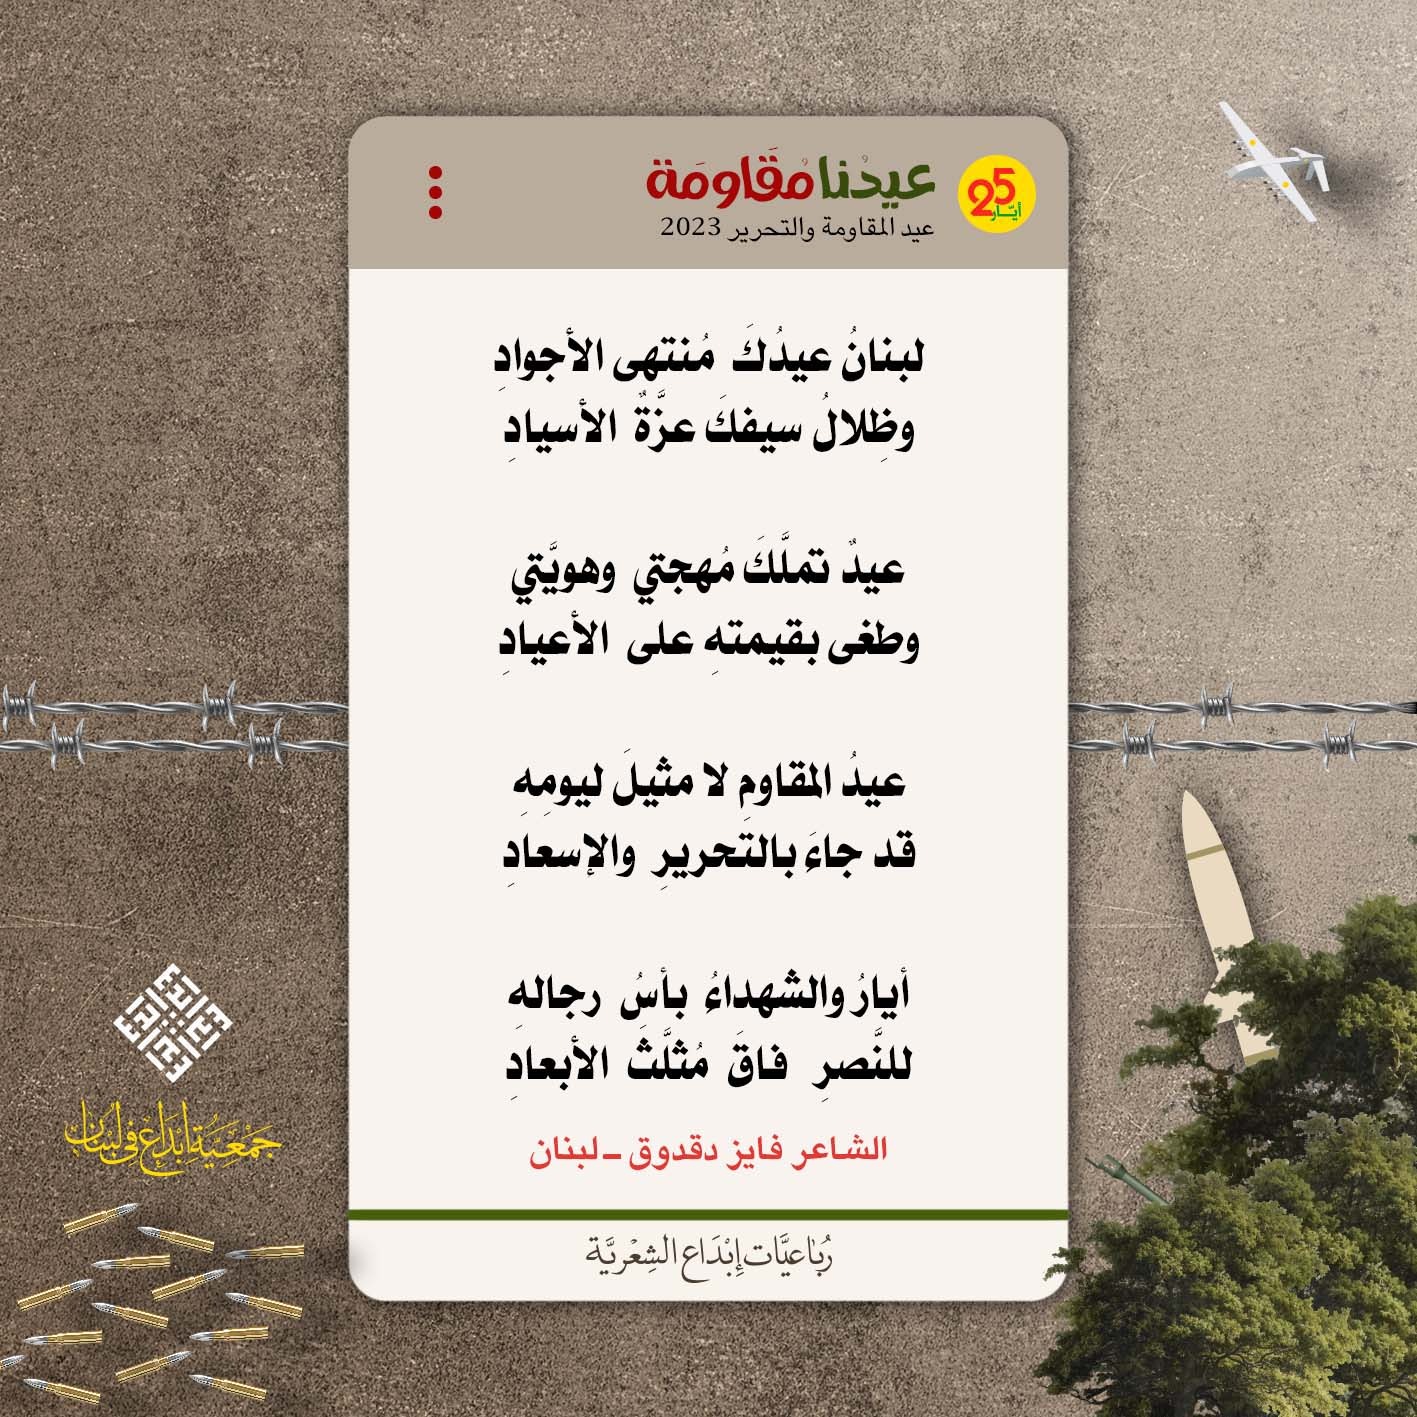 25
أيّار
عيدُنا مُقَاومَة
عيد المقاومة والتحرير 2023
لبنانُ عيدُكَ مُنتهى الأجوادِ
وظِلالُ سيفكَ عزَّةٌ الأسيادِ
عيدٌ تملَّكَ مُهجتي وهويَّتي
وطغى بقيمتهِ على الأعيادِ
عيدُ المقاومِ لا مثيلَ ليومِهِ
قد جاءَ بالتحريرِ والإسعادِ
أيارُ والشهداءُ بأسُ رجالهِ
للنَّصرِ فاقَ مُثلَّثَ الأبعادِ
الشاعر فايز دقدوق - لبنان
رُبَاعيَّات إِبْدَاع الشِعْريَّة
جَمْعِيَّة إبْدَاع في لبْنان